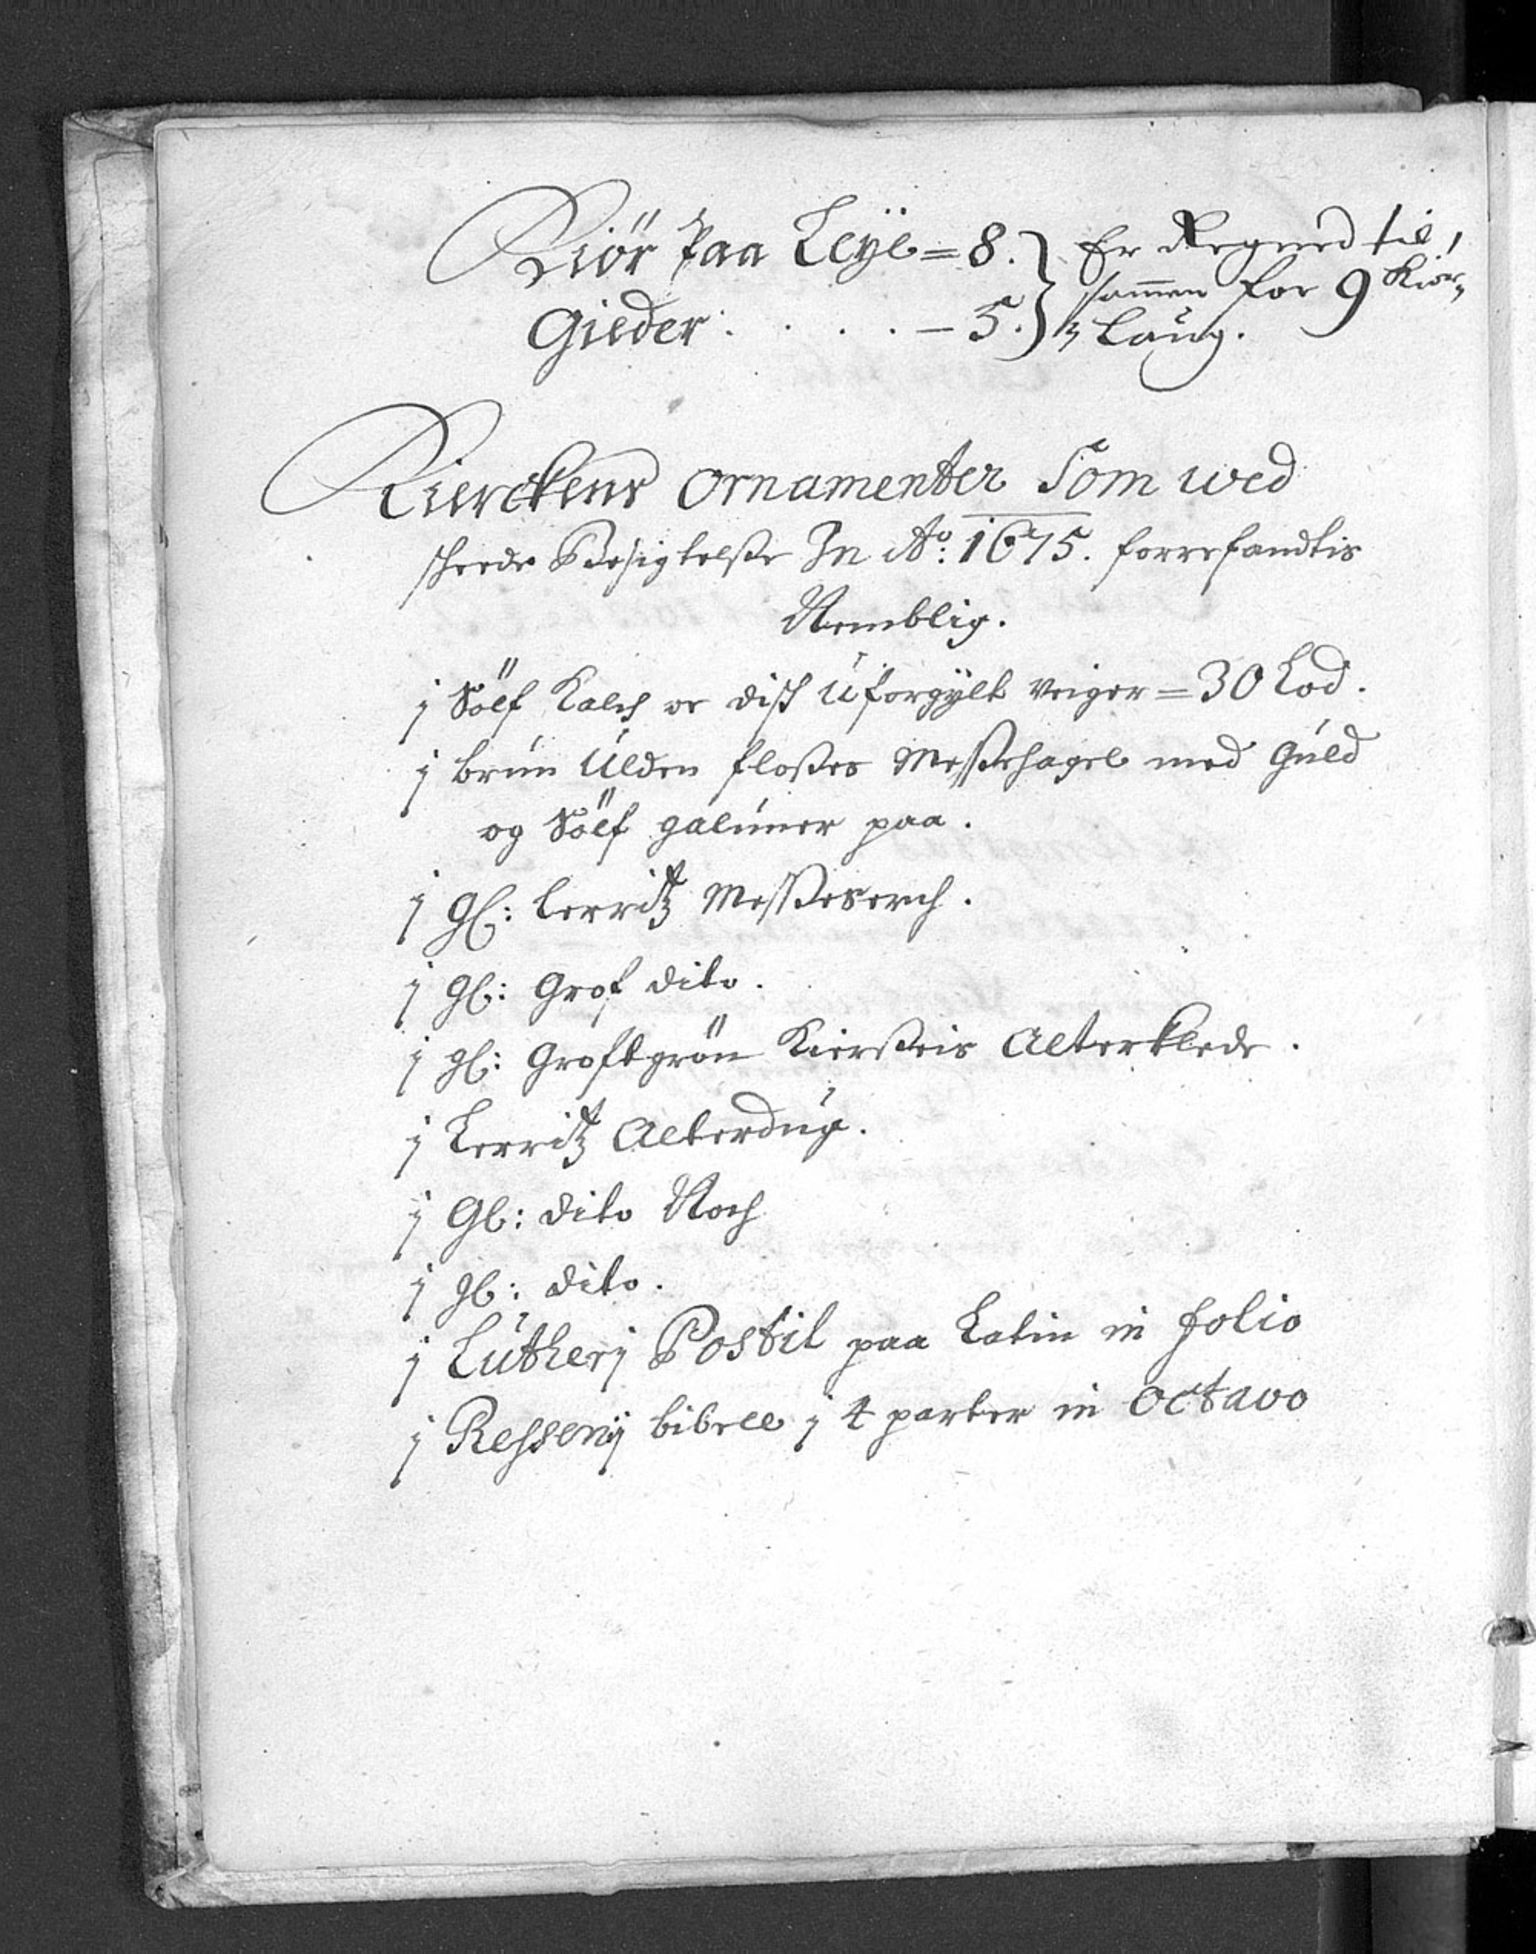 Kiör paa Leye = 8. } Er Regned til,
sammen for 9 Kiör„
Gieder: . . . . – 5. } „ Laug.
Kierckens Ornamenter Som wed
skeede Besigtelsse In Ao: 1675. forrefandtis
Nemblig.
j Sölf Kalch oc disk Uforgylt veiger = 30 Lod.
j brun Ulden floßes Messehagel med Guld
og Sölf galuner paa.
j gl: lerritz Messeserch.
j gl: Grof dito.
j gl: Groftgrön Kierßeis Alterklede.
j Lerritz Alterdug.
j Gl: dito Noch
j gl: dito.
j Lutherj Postil paa Latin in folio
j Ressenij bibell j 4 parter in Octavo